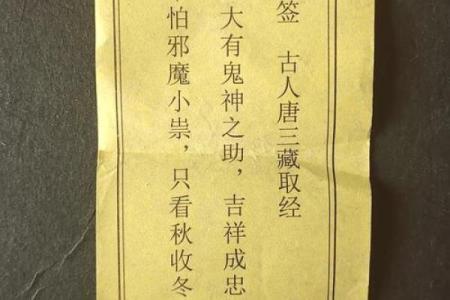 签 古人唐三藏取经
大有鬼神之助，吉祥成忠
怕邪魔小祟，只看秋收冬